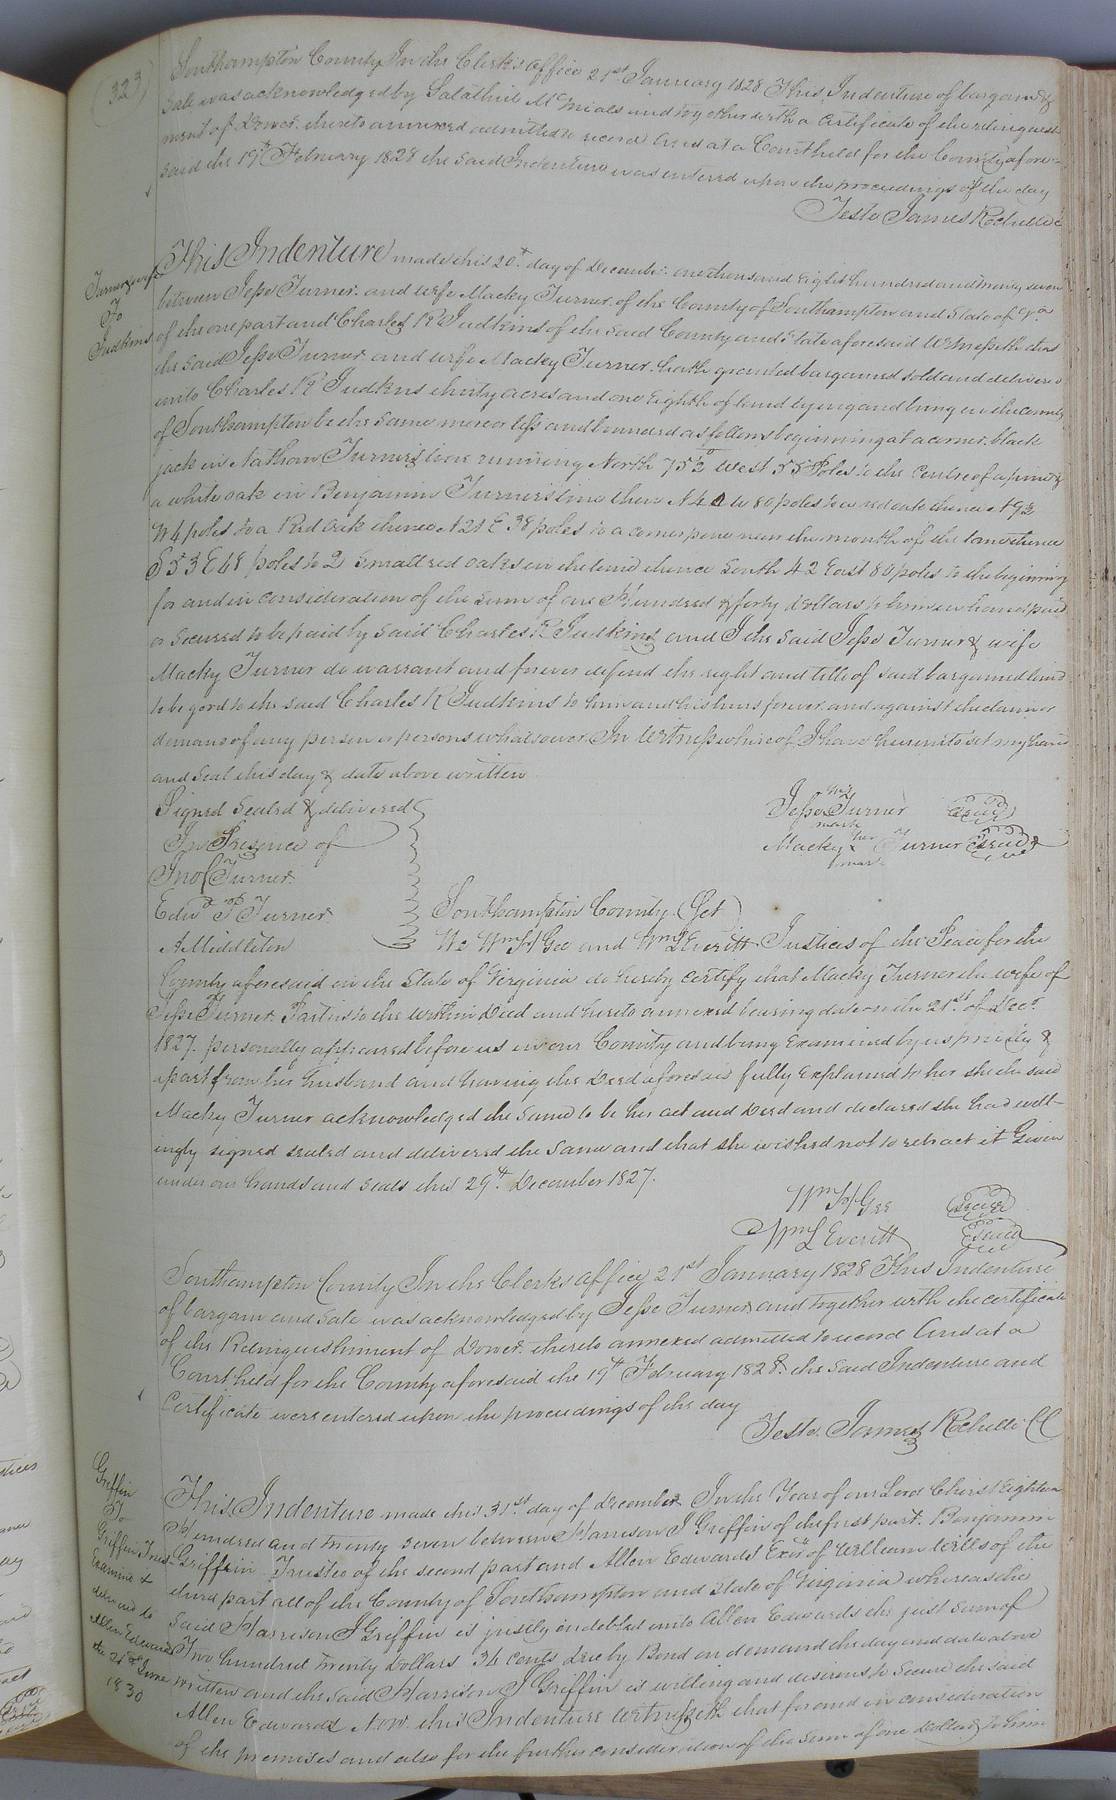 (323)
Southampton County In the Clerk's office 21st January 1828 This Indenture of bargain &
Sale was acknowledged by Salathiel and together with a Certificate of the relinquish
ment of Dower thereto annexed admitted to record And at a Court held for the County afore
said the 19th February 1828 the said Indenture was entered upon the proceedings of the day
Teste James Rochelle C
Turner & wife
To
Judkins
This Indenture made this 20th day of December one thousand Eight hundred and twenty seven
between Jesse Turner and wife Macky Turner of the County of Southampton and State of Va
of the one part and Charles R Judkins of the said County and State aforesaid Witnesseth that
the said Jesse Turner and wife Macky Turner hath granted bargained sold and delivered
unto Charles R Judkins thirty acres and one Eighth of land lying and being in the County
of Southampton be the same more or less and bounded as follows beginning at a corner black
jack in Nathan Turner's line running North 75½ West 55 Poles to the Centre of a pine &
a white oak in Benjamin Turner's line then N 40 W 80 poles to a red oak thence N 9½
W 4 poles to a Red Oak thence N 21 E 38 poles to a corner pine near the mouth of the lane thence
S 53 E 48 poles to 2 small red oaks on the bend thence South 42 East 80 poles to the beginning
for and in consideration of the sum of one Hundred & forty Dollars to him in hand paid
or secured to be paid by said Charles R Judkins and I the said Jesse Turner & wife
Macky Turner do warrant and forever defend the right and title of said bargained land
to be good to the said Charles R Judkins to him and his heirs forever and against the claim or
demand of any person or persons whatsoever In Witness whereof I have hereunto set my hand
and Seal this day & date above written
Signed Sealed & delivered
In Presence of
Jno Turner
Edwd P Turner
A Middleton
Jesse Turner Seal
mark
Macky her Turner Seal
mark
Southampton County (Sct)
We Wm H Gee and Wm L Everitt Justices of the Peace for the
County aforesaid in the State of Virginia do hereby certify that Macky Turner the wife of
Jesse Turner Parties to the within Deed and hereto annexed bearing date on the 21st of Decr
1827 personally appeared before us in our County and being Examined by us privily &
apart from her husband and having the Deed aforesaid fully Explained to her she the said
Macky Turner acknowledged the same to be her act and Deed and declared she had will-
ingly signed sealed and delivered the same and that she wished not to retract it Given
under our hands and seals this 29th December 1827.
Wm H Gee Seal
Wm L Everitt Seal
Southampton County In the Clerks office 21st January 1828 This Indenture
of bargain and sale was acknowledged by Jesse Turner and together with the certificate
of the Relinquishment of Dower thereto annexed admitted to record And at a
Court held for the County aforesaid the 19th February 1828 the said Indenture and
Certificate were entered upon the proceedings of the day
Teste James Rochelle CC
Griffin
To
Griffin Trust
Examined &
delivered to
Allen Edwards
the 21st June
1830
This Indenture made this 31st day of December In the Year of our Lord Christ Eighteen
Hundred and twenty seven between Harrison J Griffin of the first part Benjamin
Griffin Trustee of the second part and Allen Edwards Exor of William Wills of the
third part all of the County of Southampton and State of Virginia whereas the
said Harrison J Griffin is justly indebted unto Allen Edwards the just sum of
Two hundred twenty Dollars 34 cents due by Bond on demand the day and date above
written and the said Harrison J Griffin is willing and desirous to secure the said
Allen Edwards Now this Indenture Witnesseth that for and in consideration
of the premises and also for the further consideration of the sum of one Dollar to him